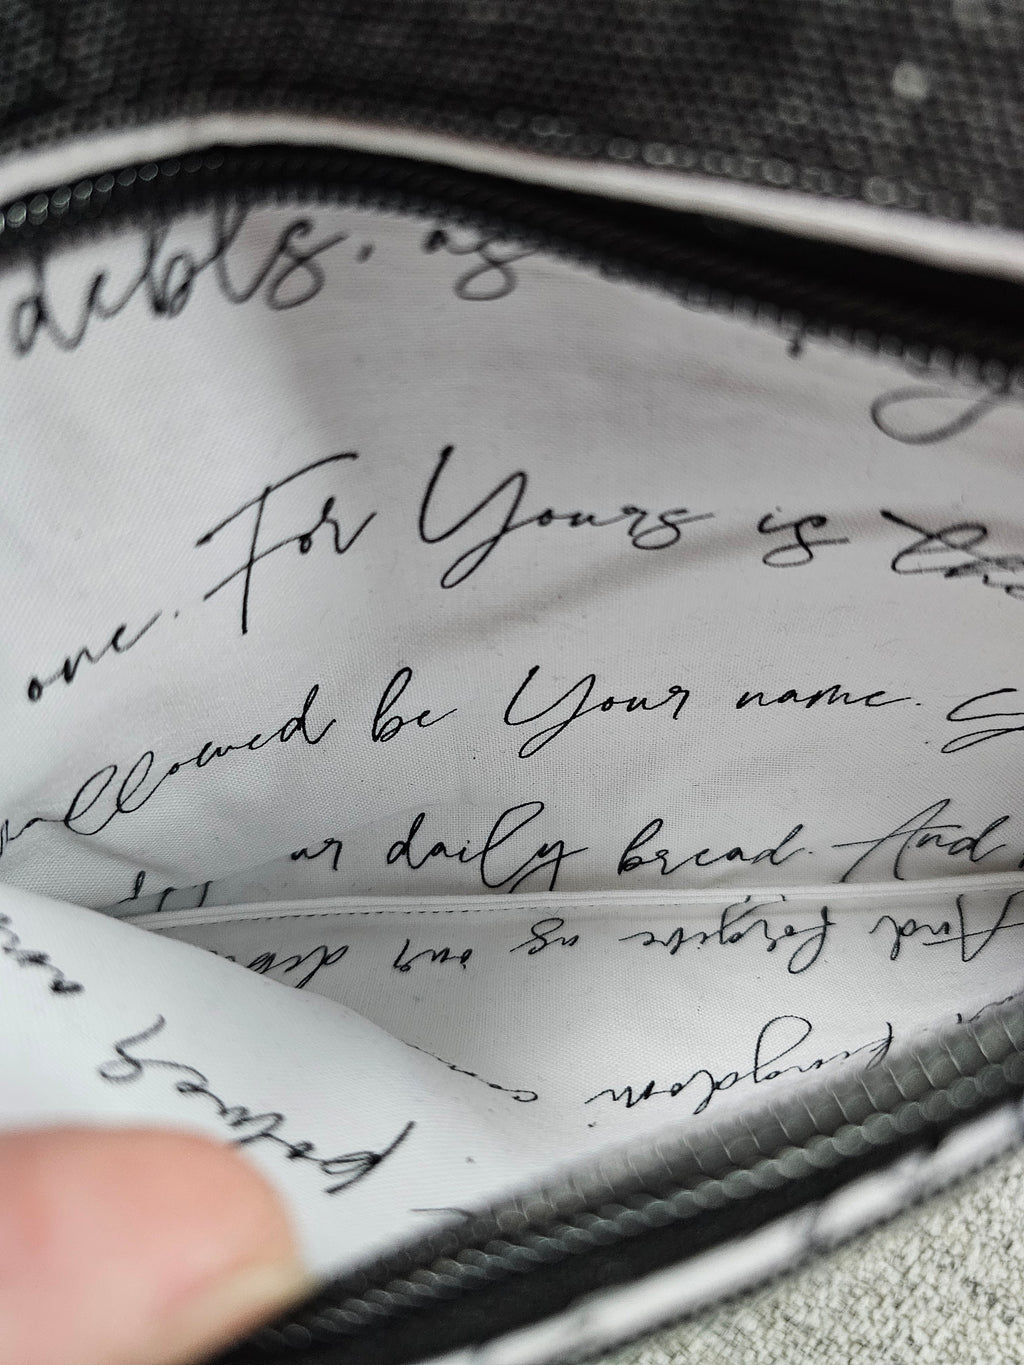 debts, as
one. For Yours is the
allowed be Your name.
ur daily bread. And
And forgive us our deb
kingdom
power